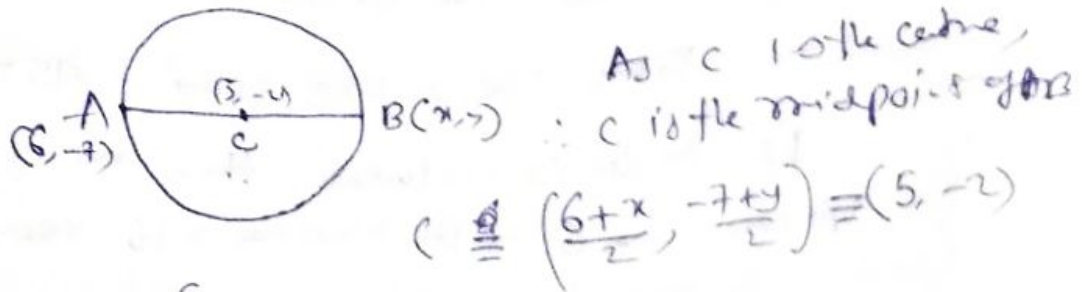 (5, -2)
A
B(x, y)
C
(6, -7)
As C is the centre,
∴ C is the midpoint of AB
C ≡ (6+x/2, -7+y/2) ≡ (5, -2)